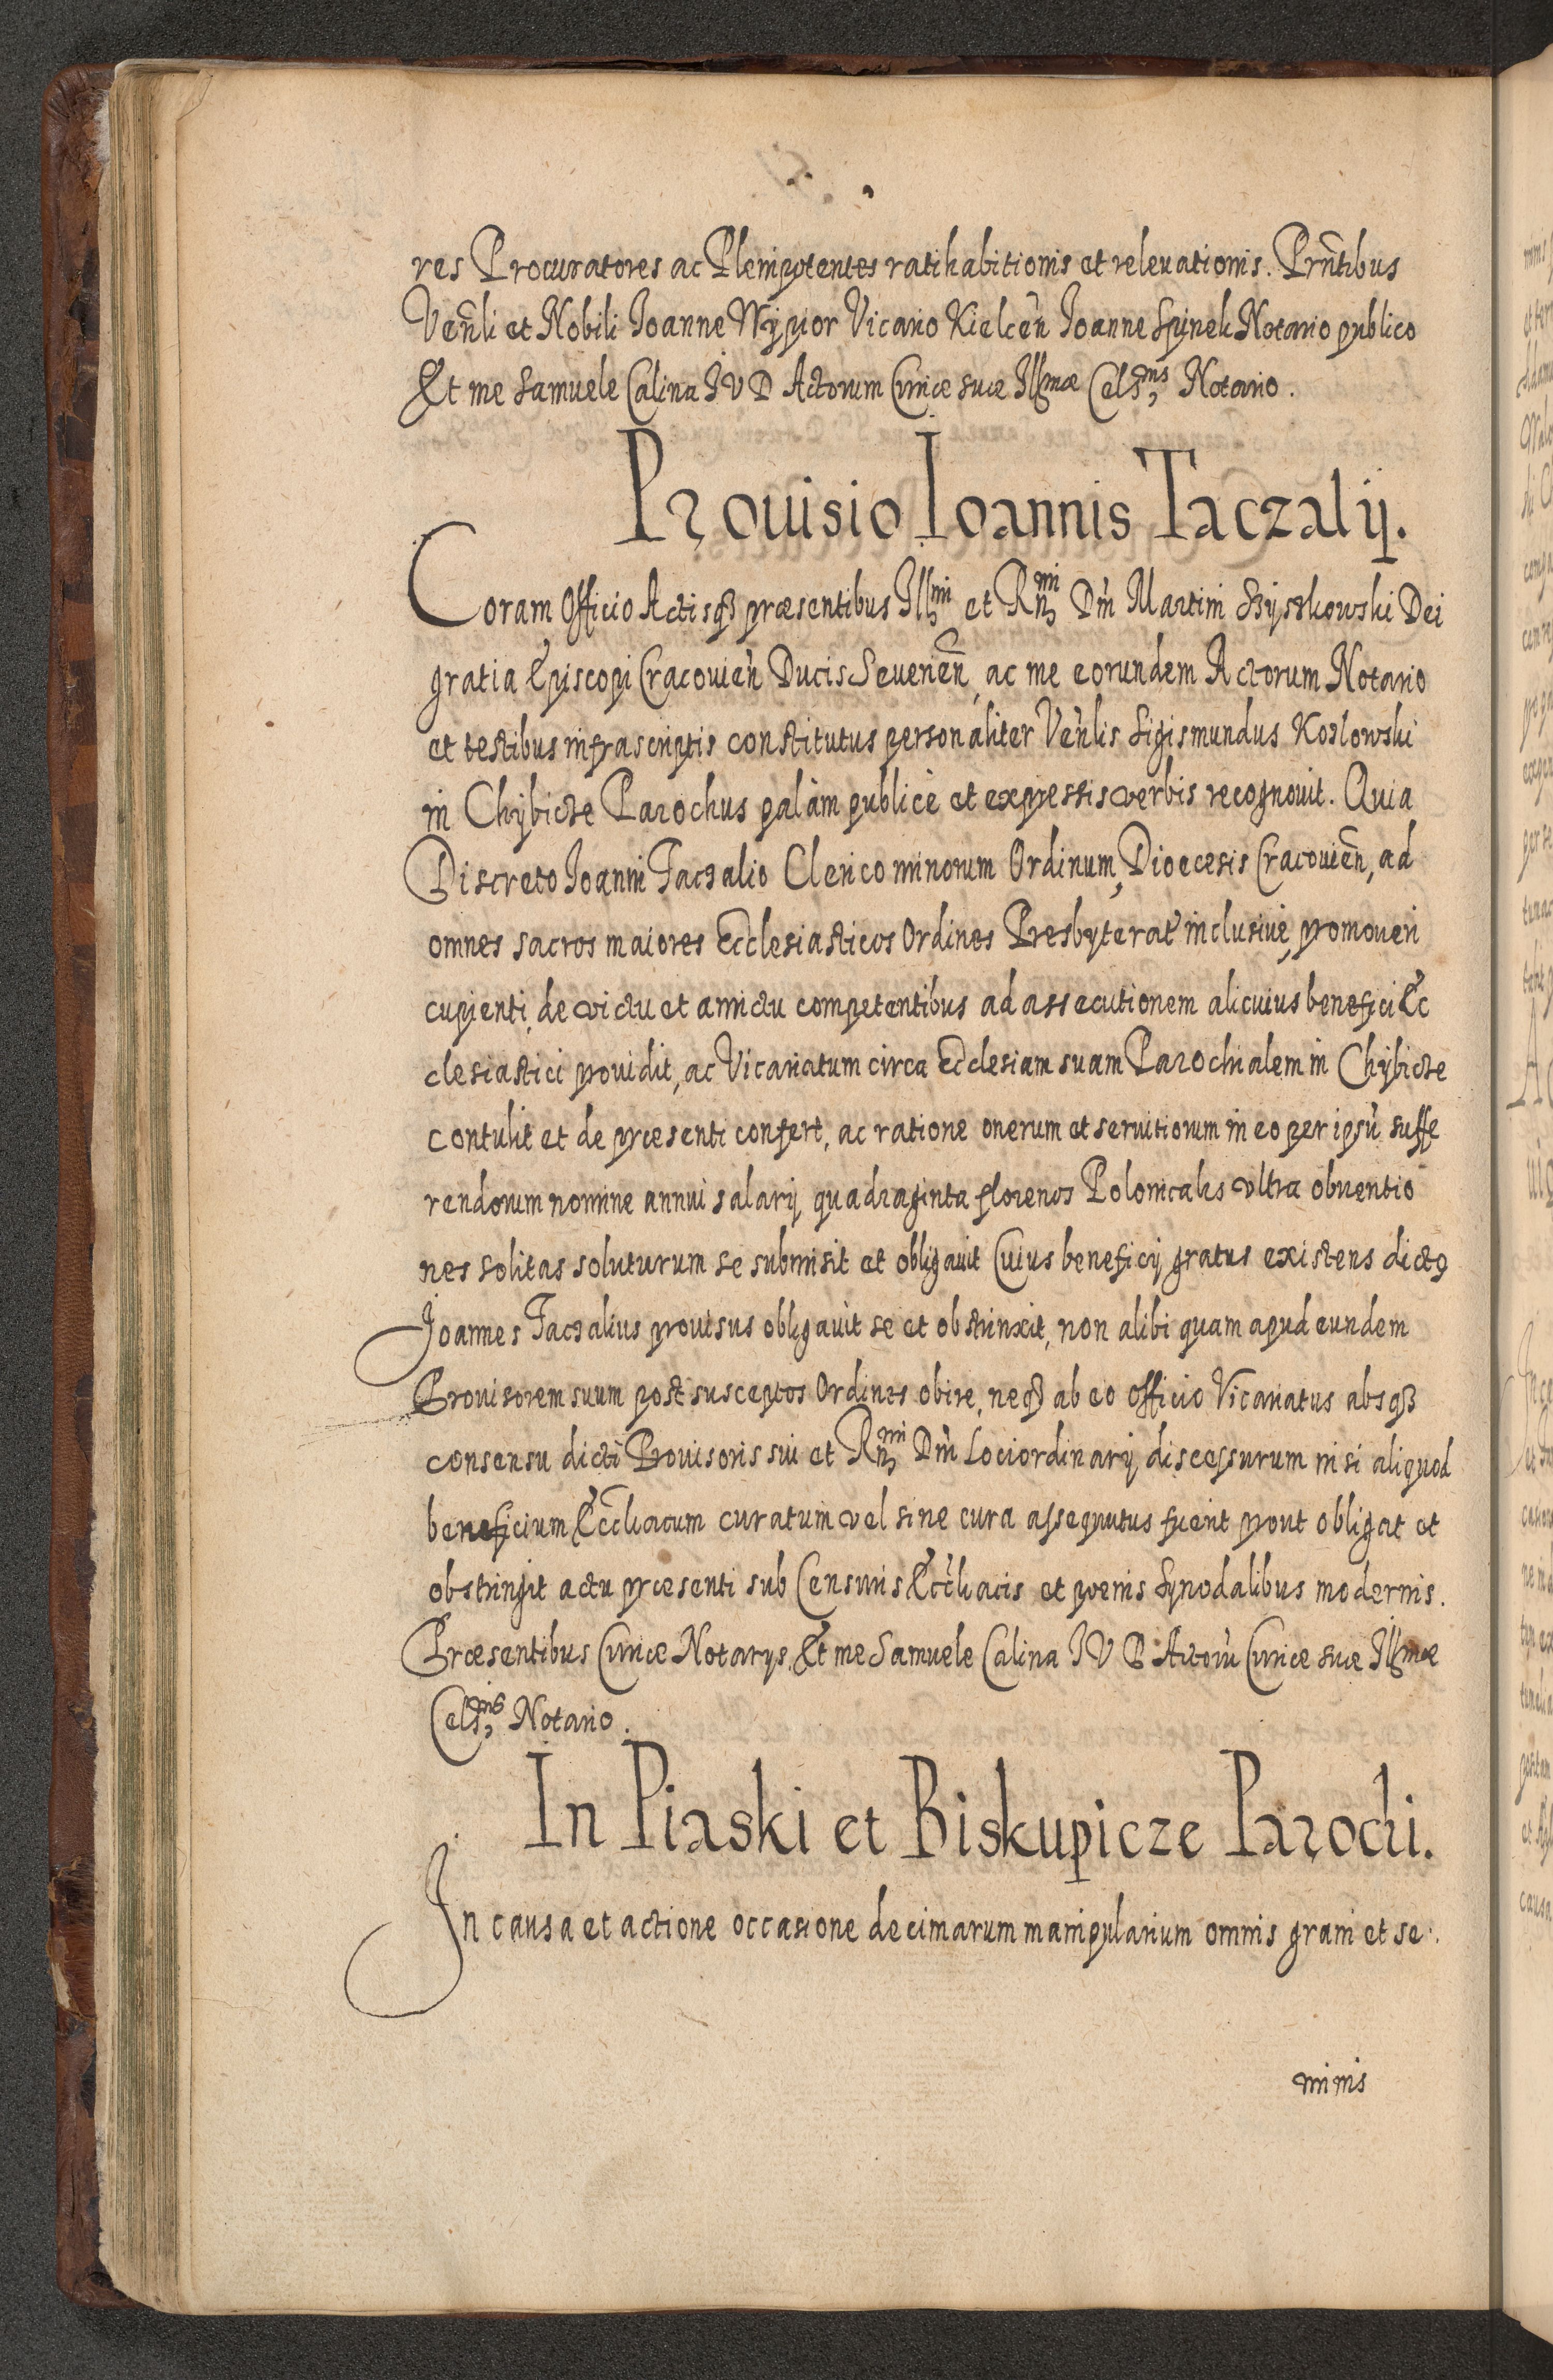 res Procuratores ac Plenipotentes ratihabitionis et releuationis. Prñtibus
Veñli et Nobili Ioanne Wÿpior Vicario Kielceñ Ioanne Spinek Notario publico
Et me Samuele Calina I V D Actorum Curiæ suæ Illmæ Cels:nis Notario.
Prouisio Ioannis Taczalij.
Coram Officio Actisqꝫ præsentibus Illmi et Rñmi Dñi Martini Szÿszkowski Dei
gratia Episcopi Cracouieñ Ducis Seuerieñ, ac me eorundem Actorum Notario
et testibus infrascriptis constitutus personaliter Veñlis Sigismundus Kozlowski
in Chÿbicze Parochus palàm publicè et expressis verbis recognouit. Quia
Discreto Ioanni Taczalio Clerico minorum Ordinum, Dioecesis Cracouieñ, ad
omnes sacros maiores Ecclesiasticos Ordines Presbyterat9 inclusiuè, promoueri
cupienti, de victu et amictu competentibus ad assecutionem alicuius benefici Ec
clesiastici prouidit, ac Vicariatum circa Ecclesiam suam Parochialem in Chÿbicze
contulit et de præsenti confert, ac ratione onerum et seruitiorum in eo per ipsũ suffe
rendorum nomine annui salarij quadraginta florenos Polonicales vltra obuentio
nes solitas soluturum se submisit et obligauit Cuius beneficij gratus existens dict9
Joannes Taczalius prouisus obligauit se et obstrinxit, non alibi quam apud eundem
Prouisorem suum post susceptos Ordines obire, neqꝫ ab eo officio Vicariatus absqꝫ
consensu dicti Prouisoris sui et Rñmi Dñi Lociordinarij discessurum nisi aliquod
beneficium Eccliacum curatum vel sine cura assequutus fuerit prout obligat et
obstringit actu præsenti sub Censuris Eccliacis et poenis Synodalibus modernis.
Præsentibus Curiæ Notarys, Et me Samuele Calina I V D Actorũ Curiæ suæ Illmæ
Cels:nis Notario.
In Piaski et Biskupicze Parochi.
In causa et actione occasione decimarum manipularium omnis grani et se:
minis